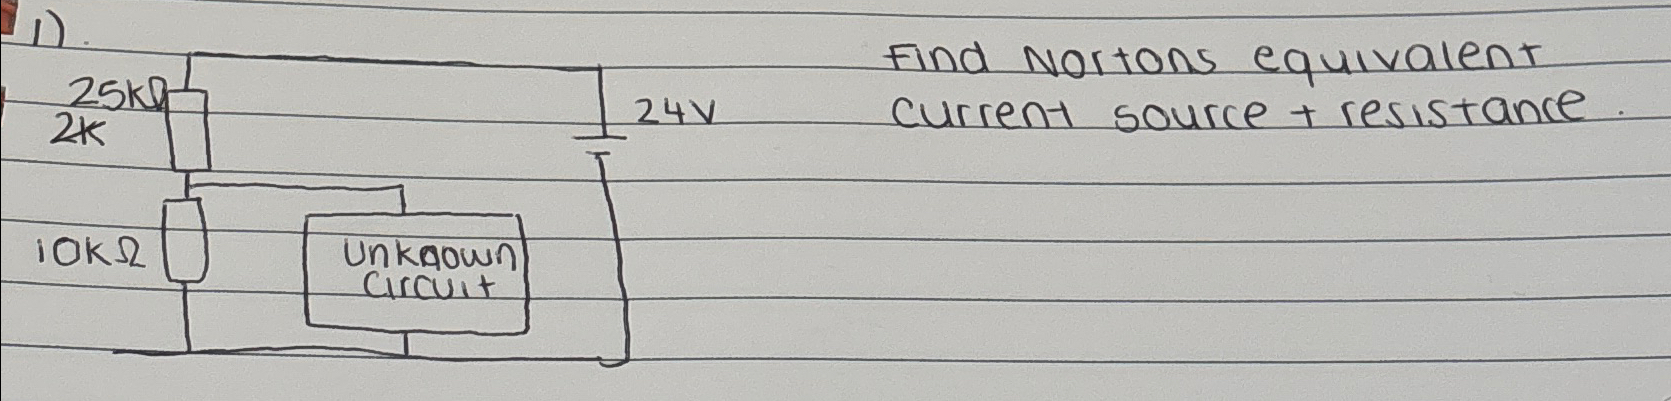 1).
Find Nortons equivalent
current source + resistance.
25kΩ
2K
24V
10KΩ
Unknown
Circuit